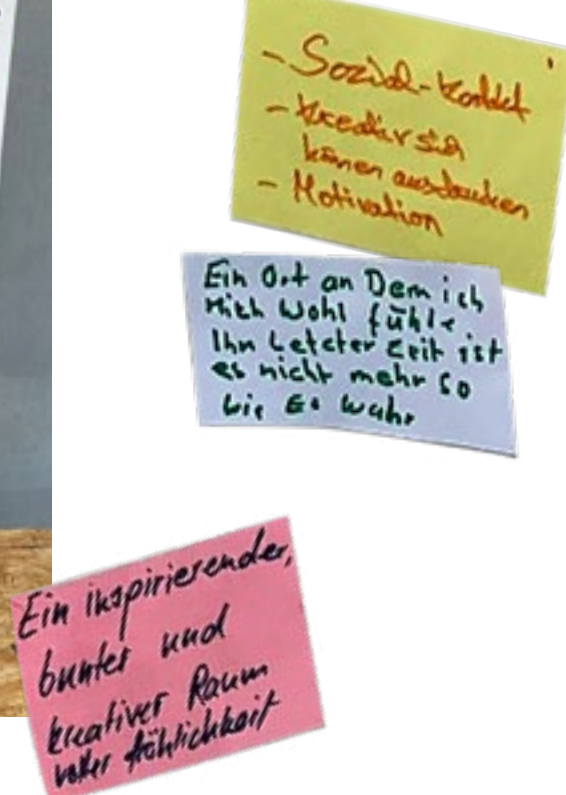 - Sozial-Kontakt
- Kreativ sich
können ausdrucken
- Motivation
Ein Ort an Dem ich
Mich Wohl fühle
Ihn Letcter Zeit ist
es nicht mehr so
wie Es wahr
Ein inspirierender,
bunter und
kreativer Raum
voller fröhlichkeit